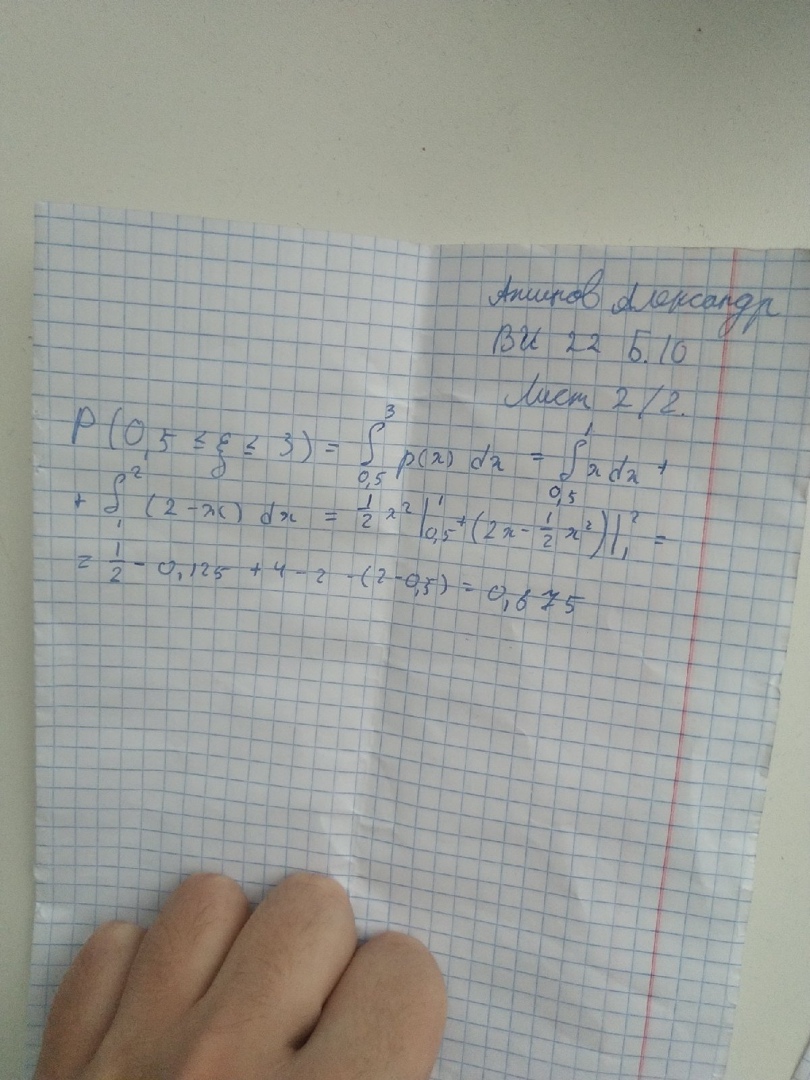 Апиров Александр
ВИ 22 Б.10
Лист 2/2.
P(0,5 ≤ ξ ≤ 3) = ∫_{0,5}^{3} p(x) dx = ∫_{0,5}^{1} x dx +
+ ∫_{1}^{2} (2-x) dx = 1/2 x² |_{0,5}^{1} + (2x - 1/2 x²) |_{1}^{2} =
= 1/2 - 0,125 + 4 - 2 - (2-0,5) = 0,675